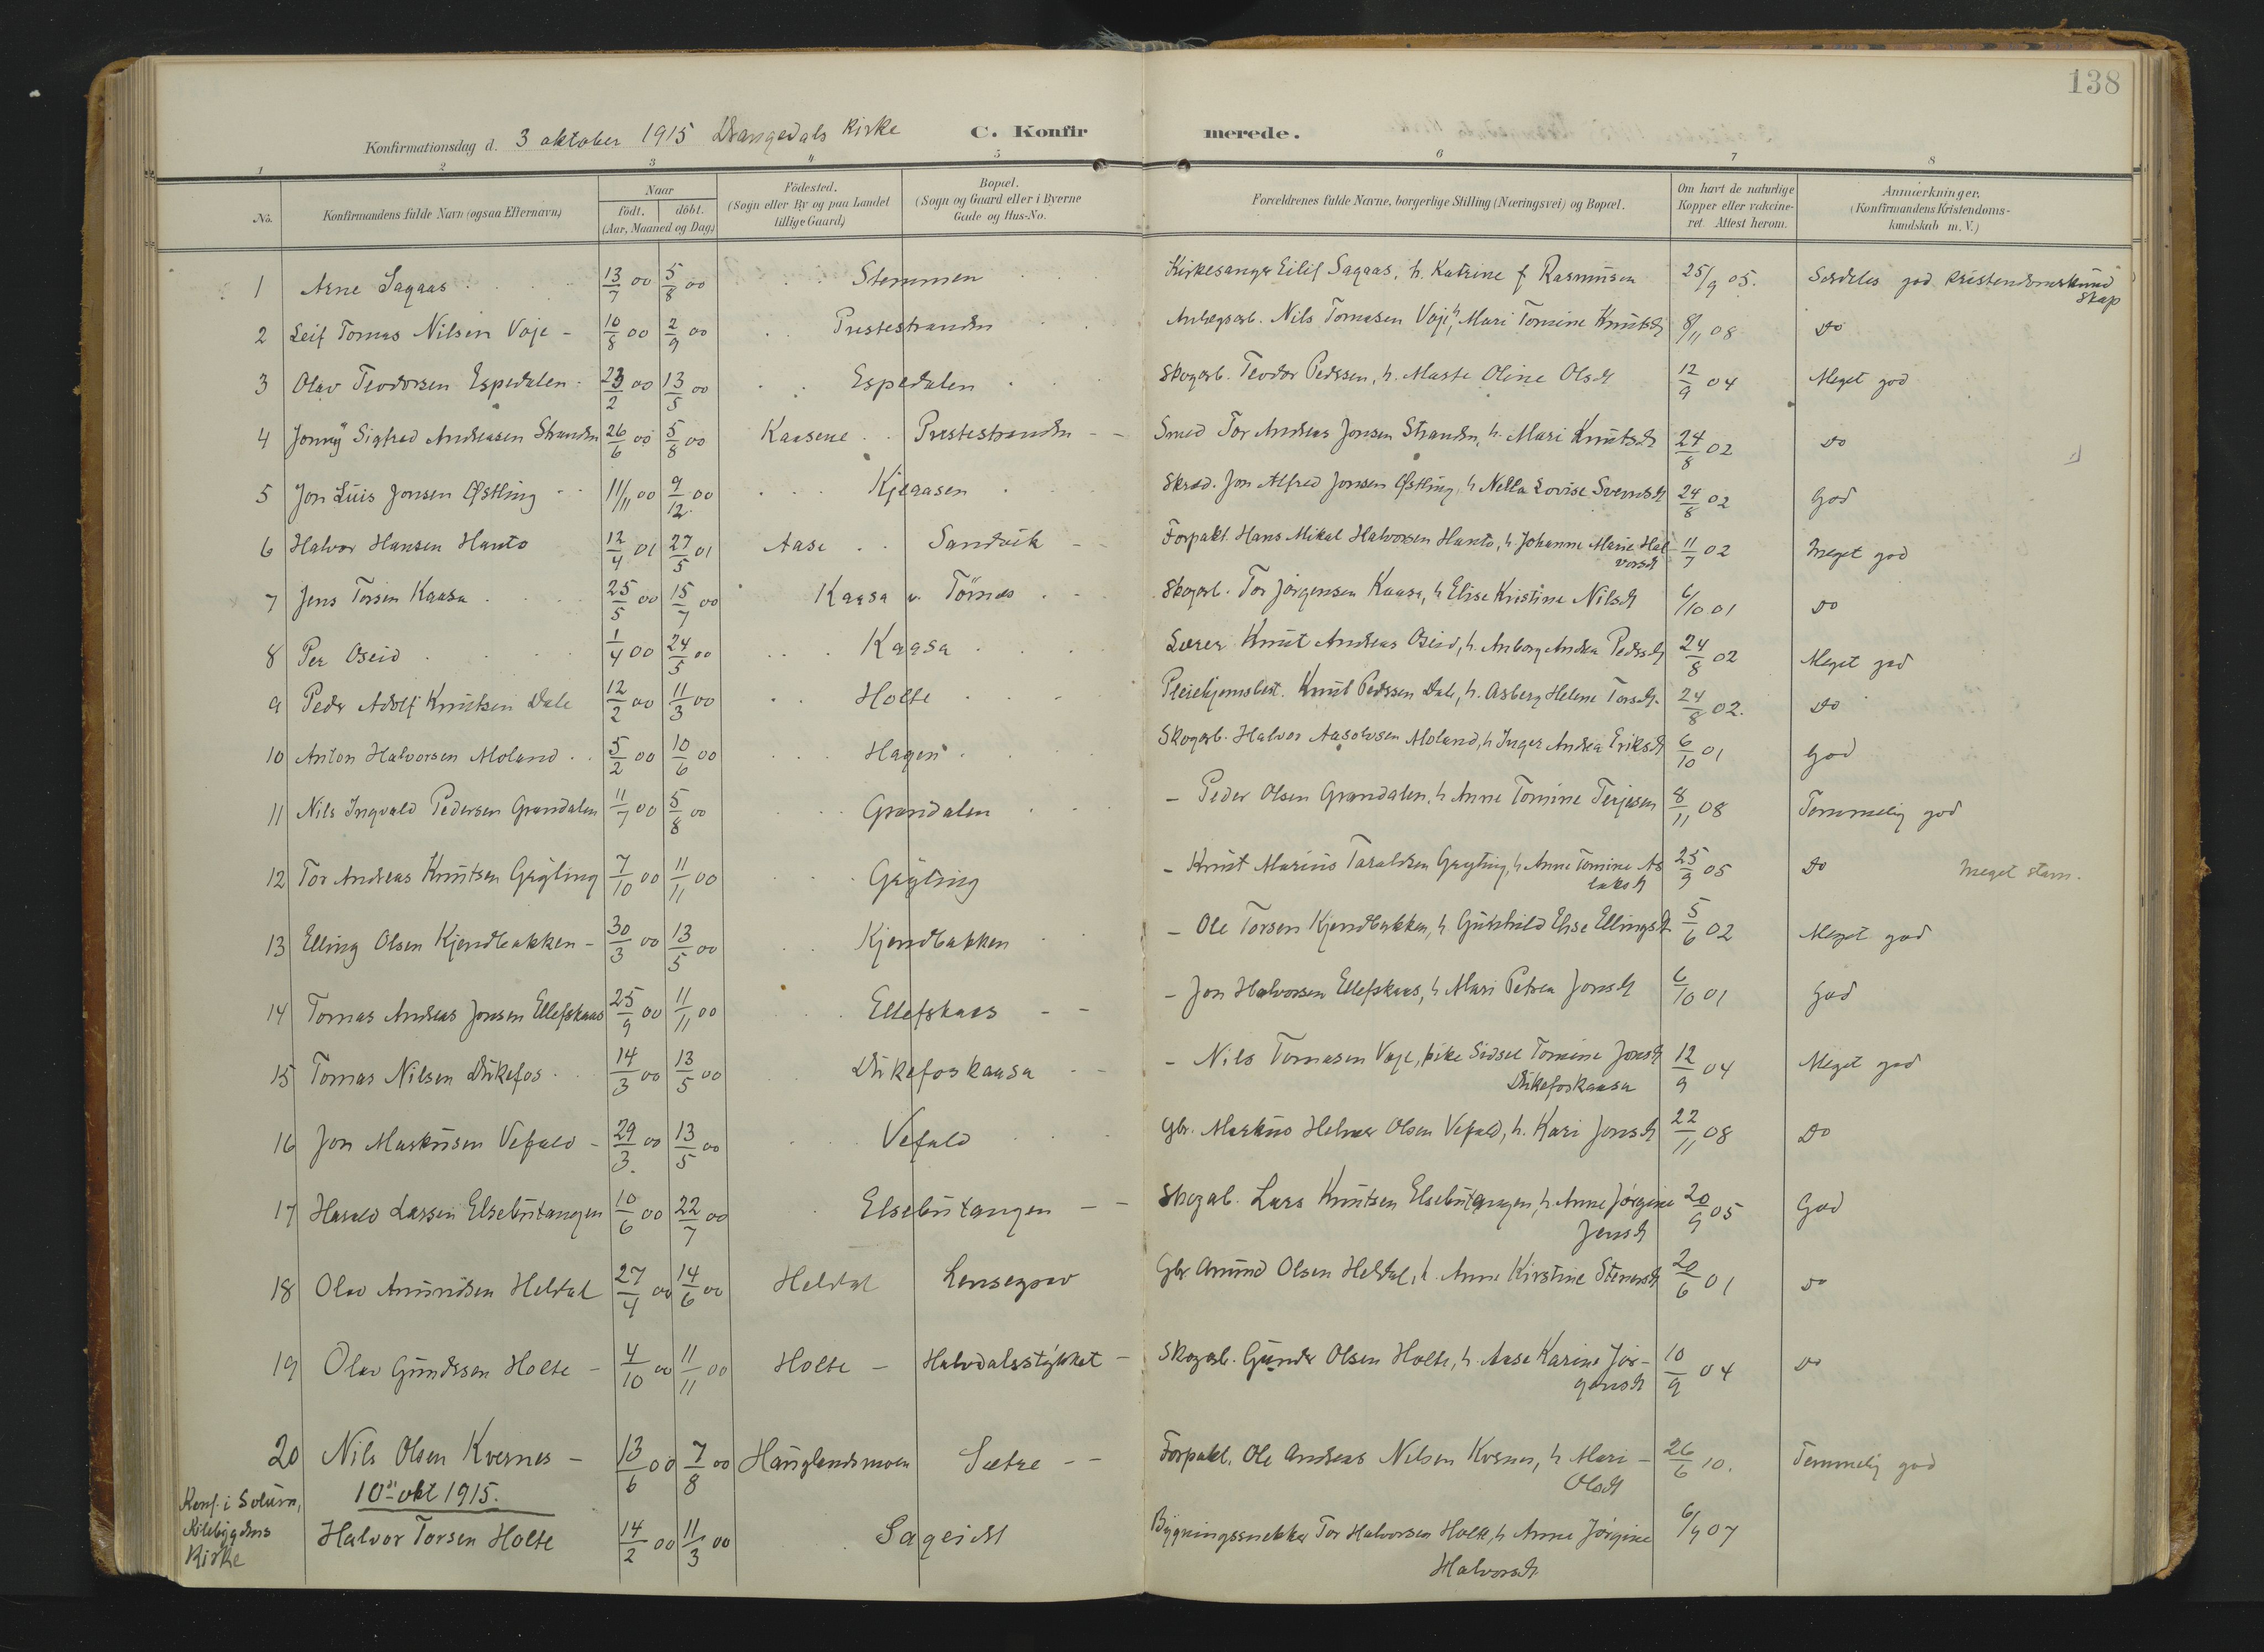 138
Konfirmationsdag d. 3 oktober 1915 Drangedals Kirke C. Konfirmerede.
1 2 3 4 5 6 7 8
No. Konfirmandens fulde Navn (ogsaa Efternavn) Naar født. døbt. (Aar, Maaned og Dag) Födested. (Sogn eller By og paa Landet tillige Gaard) Bopæl. (Sogn og Gaard eller i Byerne Gade og Hus-No. Forældrenes fulde Navne, borgerlige Stilling (Næringsvei) og Bopæl. Om havt de naturlige Kopper eller vakcineret. Attest herom. Anmærkninger. (Konfirmandens Kristendomskundskab m. V.)
1 Arne Sagaas 13/7 00 5/8 00 Stemmen Kirkesanger Eilif Sagaas, h. Katrine f Rasmusen 25/9 05. Særdeles god Kristendomskundskap
2 Leif Tomas Nilsen Voje - 10/8 00 2/9 00 Prestestranden Anlægsarb. Nils Tomasen Voje, h. Mari Tomine Knutsd 8/11 08 Do
3 Olav Teodorsen Espedalen 23/2 00 13/5 00 Espedalen Skogarb. Teodor Pedersen, h. Marte Oline Olsd 12/9 04 Meget god
4 Jonny Sigfred Andreasen Stranden 26/6 00 5/8 00 Kaasene Prestestranden - - Smed Tor Andreas Jonsen Stranden, h. Mari Knutsd 24/8 02 Do
5 Jon Luis Jonsen Østling 11/11 00 9/12 00 Kjeaasen Skræd. Jon Alfred Jonsen Østling, h Nella Lovise Svendsd 24/8 02 God
6 Halvor Hansen Hanto 12/4 01 27/5 01 Aase Sandvik - Forpakt. Hans Mikal Halvorsen Hanto, h. Johanne Marie Halvorsd 11/7 02 Meget god
7 Jens Torsen Kaasa 25/5 00 15/7 00 Kaasa v. Törnes Skogarb. Tor Jörgensen Kaasa, h Elise Kristine Nilsd 6/10 01 Do
8 Per Oseid 1/4 00 24/5 00 Kaasa Lærer Knut Andreas Oseid, h. Anborg Andrea Pedersd 24/8 02 Meget god
9 Peder Adolf Knutsen Dale 12/2 00 11/3 00 Holte Pleiehjemsbest. Knut Pedersen Dale, h. Asberg Helene Torsd. 24/8 02. Do
10 Anton Halvorsen Moland 5/2 00 10/6 00 Hagen Skogarb. Halvor Aasolvsen Moland, h Inger Andrea Eriksd 6/10 01 God
11 Nils Ingvald Pedersen Grandalen 11/7 00 5/8 00 Grandalen - Peder Olsen Grandalen, h Anne Tomine Terjesen 8/11 08 Temmelig god
12 Tor Andreas Knutsen Gøyting 7/10 00 11/11 00 Gøyting - Knut Marius Taraldsen Gøyting, h Anne Tomine Aslaksd 25/9 05 Do Meget stam.
13 Elling Olsen Kjendbakken - 30/3 00 13/5 00 Kjendbakken - Ole Torsen Kjendbakken, h Gunhild Else Ellingsd 5/6 02 Meget god
14 Tomas Andreas Jonsen Ellefskaas 25/9 00 11/11 00 Ellefskaas - - - Jon Halvorsen Ellefskaas, h Mari Petrea Jonsd 6/10 01 God
15 Tomas Nilsen Dükefos 14/3 00 13/5 00 Dükefoskaasa - Nils Tomasen Voje, pike Sidsel Tomine Jonsd Dükefoskaasa 12/9 04 Meget god
16 Jon Markusen Vefald - 29/3. 00 13/5 00 Vefald Gbr. Markus Helmer Olsen Vefald, h. Kari Jonsd 22/11 08 Do
17 Harald Larsen Elsebutangen 10/6 00 22/7 00 Elsebutangen - - Skogarb. Lars Knutsen Elsebutangen, h. Anne Jörgine Jensd 20/9 05 God
18 Olav Amundsen Heldal 27/4 00 14/6 00 Heldal Lensegrav Gbr Amund Olsen Heldal, h. Anne Kirstine Stenersd 20/6 01 Do
19 Olav Gundersen Holte - 4/10 00 11/11 00 Holte - Halvdalsstykket - Skogarb. Gunder Olsen Holte, h. Aase Karine Jörgensd 10/9 04 Do
20 Nils Olsen Kvernes - 13/6 00 7/8 00 Hauglandsmoen Sætre - - Forpakt. Ole Andreas Nilsen Kvernes, h Mari Olsd 26/6 10. Temmelig god
10de okt 1915.
Konf. i Solum, Kilebygdens Kirke Halvor Torsen Holte 14/2 00 11/3 00 Sageidet Bygningssnekker Tor Halvorsen Holte, h Anne Jörgine Halvorsd 6/9 07